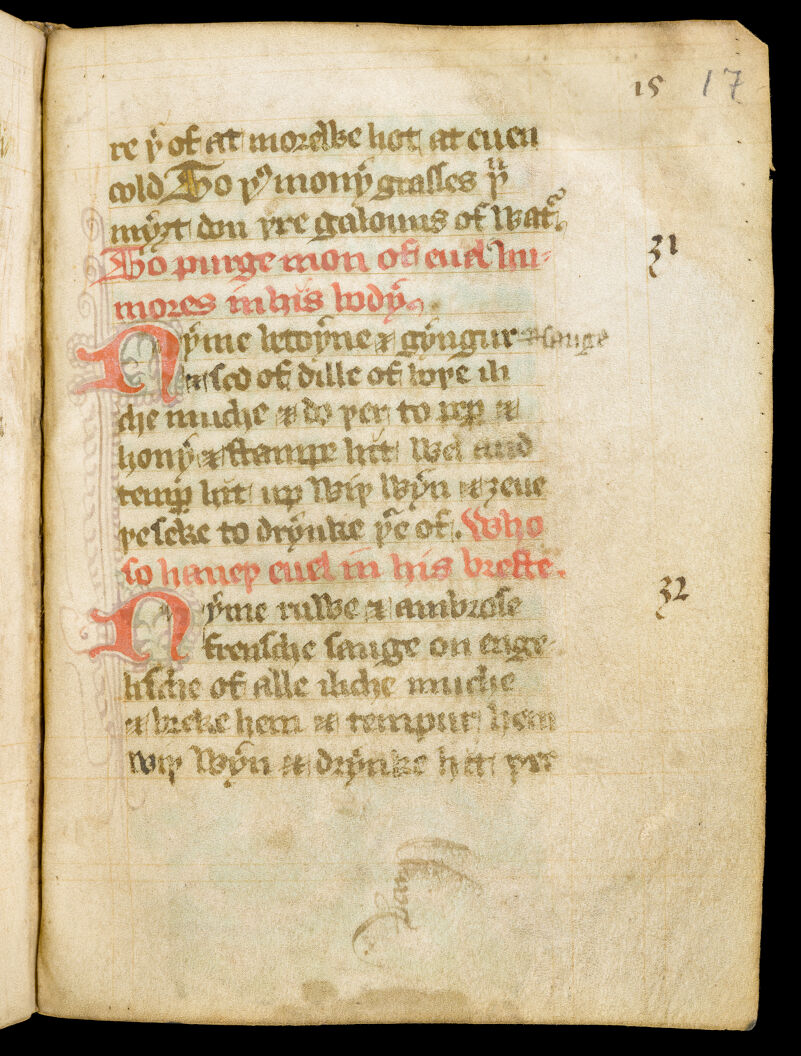 15 17
re þ of at morewe hot at euen
cold To þis mony grasses þu
myʒt don þre galouns of Wat
31
To purge mon of euel hu-
mores in his body.
Nyme betoyne & gyngur & sauge
& sed of dille of euþe ili
che muche & do þer to pep &
hony & stampe hit Wel and
temp hit up Wiþ Wyn & ʒeue
þe seke to drynke þe of. Who
so haueþ euel in his breste.
32
Nyme ruwe & ambrose
frensche sauge on enge
lische of alle iliche muche
& breke hem & tempur hem
Wiþ Wyn & drynke hit þre